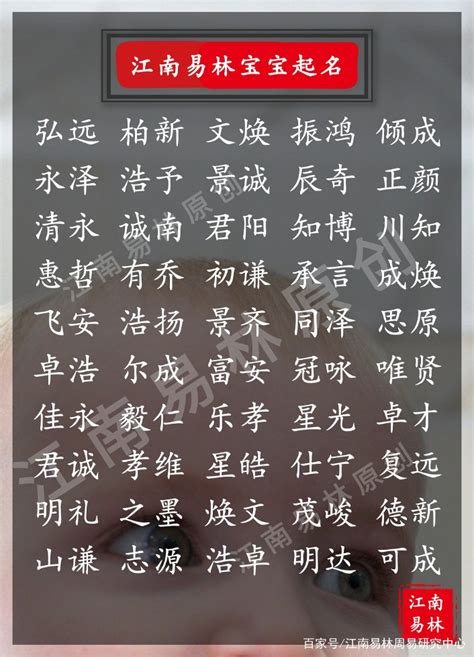 江南易林宝宝起名
弘远 柏新 文焕 振鸿 倾成
永泽 浩予 景诚 辰奇 正颜
清永 诚南 君阳 知博 川知
惠哲 有乔 初谦 承言 成焕
飞安 浩扬 景齐 同泽 思原
卓浩 尔成 富安 冠咏 唯贤
佳永 毅仁 乐孝 星光 卓才
君诚 孝维 星皓 仕宁 复远
明礼 之墨 焕文 茂峻 德新
山谦 志源 浩卓 明达 可成
江南易林原创
江南易林原创
江南易林原创
江南
易林
百家号/江南易林周易研究中心